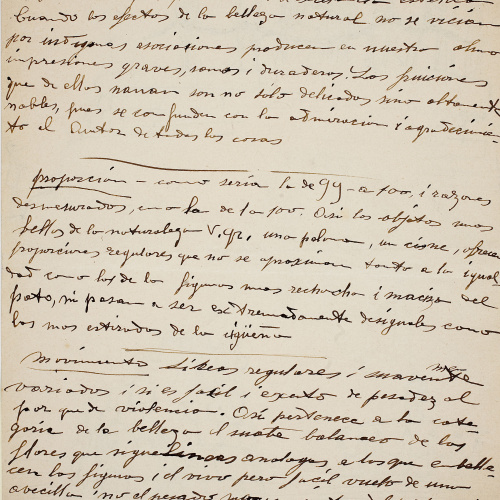 Cuando los efectos de la belleza natural no se vician
por indignas asociaciones producen en nuestra alma
impresiones graves, sanas i duraderas. Las fruiciones
que de ellas nanan son no solo delicadas sino altamente
nables, pues se confunden con la admiracion i agradecimien-
to al Autor de todas las cosas
proporcion — como seria la de 99 - a 100, i razones
desmesuradas, como la de 1 a 100. Asi los objetos mas
bellos de la naturaleza V. gr. una paloma, un cisne, ofrecen
proporciones regulares que no se aproximan tanto a la igual
dad como las de la figura mas rechoncha i maciza del
pato, ni pasan a ser extremadamente desiguales como
las mas estiradas de la cigüeña
Movimiento Lineas regulares i suavemente
variadas i si es facil i exento de pesadez al
par que de violencia. Asi pertenece a la cate
goria de la belleza el suave balanceo de las
flores que sigue lineas analogas a las que embelle
cen las figuras i el vivo pero facil vuelo de una
avecilla i no el pesado